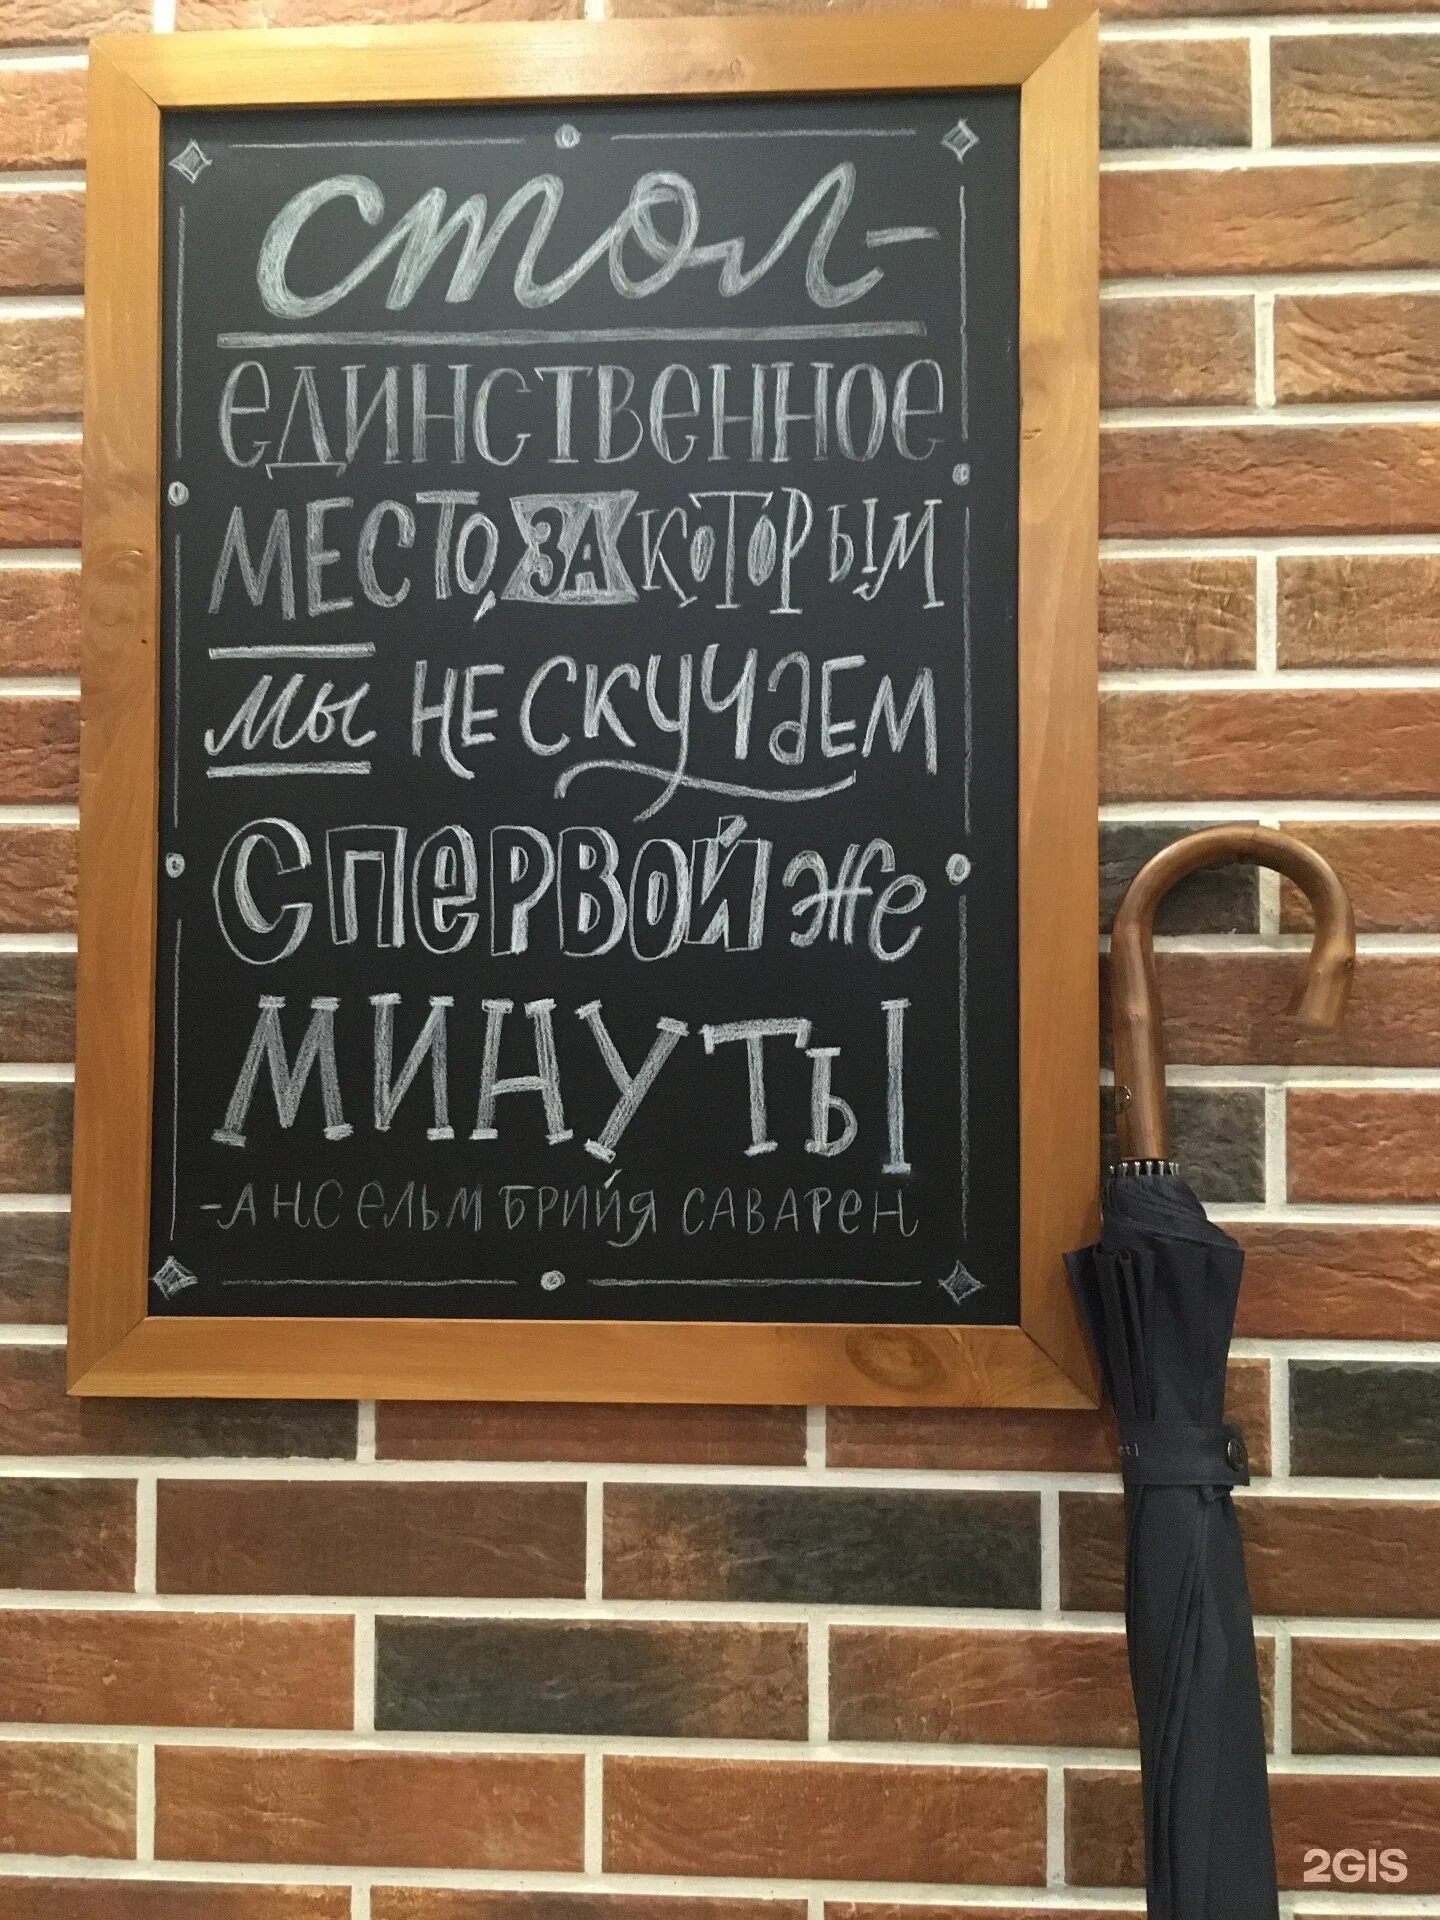 Стол-
единственное
место, за которым
мы не скучаем
с первой же
минуты
-Ансельм Брийя Саварен
2GIS